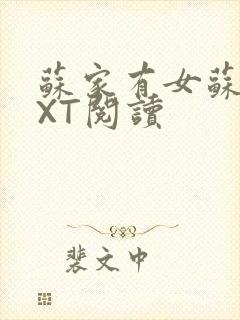 蘇家有女蘇
XT閱讀
裴文中